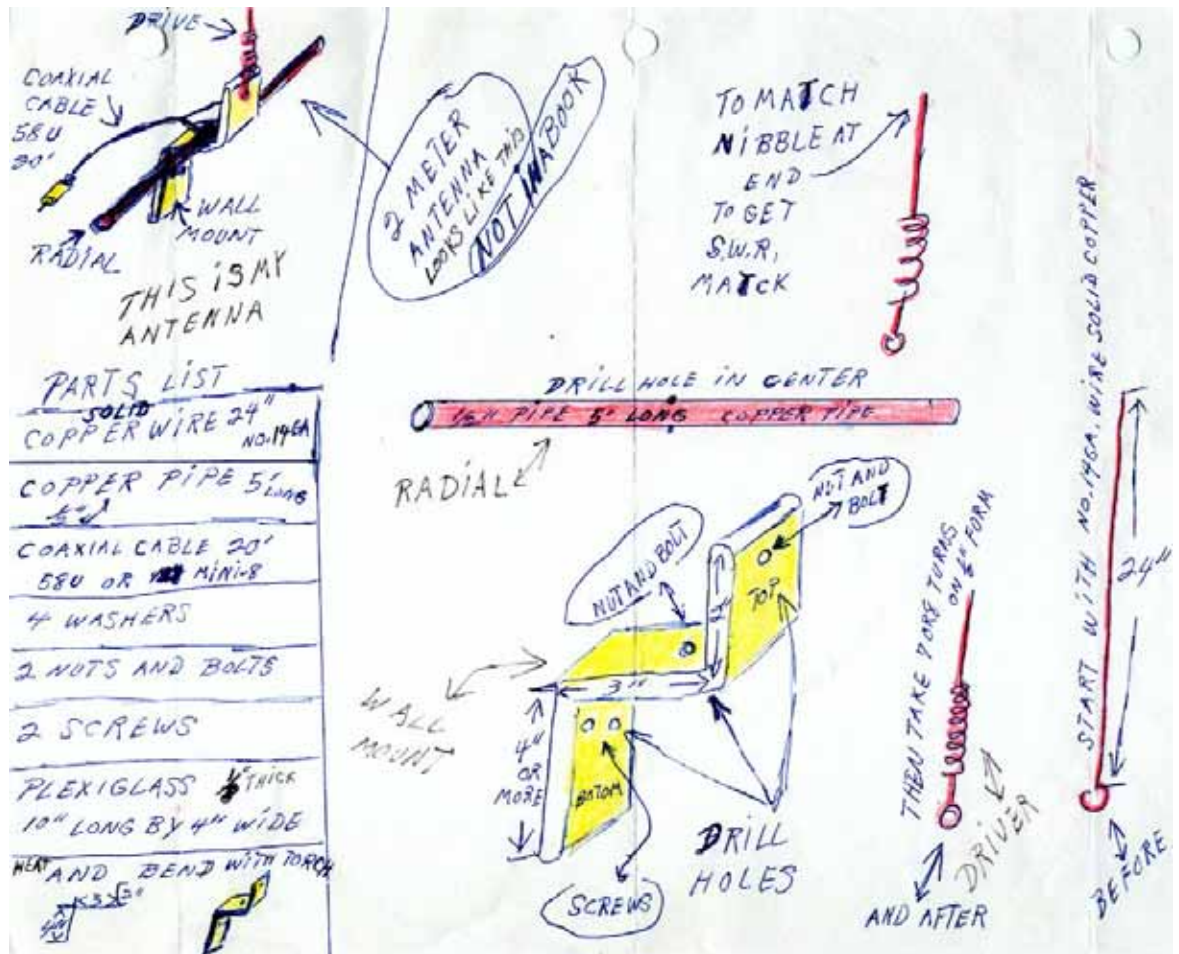 DRIVE
COAXIAL
CABLE
58U
20'
WALL
MOUNT
RADIAL
THIS IS MY
ANTENNA
2 METER
ANTENNA
LOOKS LIKE THIS
NOT IN A BOOK
TO MATCH
NIBBLE AT
END
TO GET
S.W.R.
MATCK
PARTS LIST
SOLID
COPPER WIRE 24"
NO.14GA
COPPER PIPE 5' LONG
1/2"
COAXIAL CABLE 20'
58U OR MINI-8
4 WASHERS
2 NUTS AND BOLTS
2 SCREWS
PLEXIGLASS THICK
10" LONG BY 4" WIDE
HEAT AND BEND WITH TORCH
DRILL HOLE IN CENTER
1/2" PIPE 5' LONG COPPER PIPE
RADIAL
NUT AND
BOLT
NUT AND BOLT
TOP
3"
WALL
MOUNT
4"
OR
MORE
BOTOM
DRILL
HOLES
SCREWS
THEN TAKE 7 OR 8 TURNS
ON 1/2" FORM
DRIVER
AND AFTER
START WITH NO.14GA. WIRE SOLID COPPER
24"
BEFORE